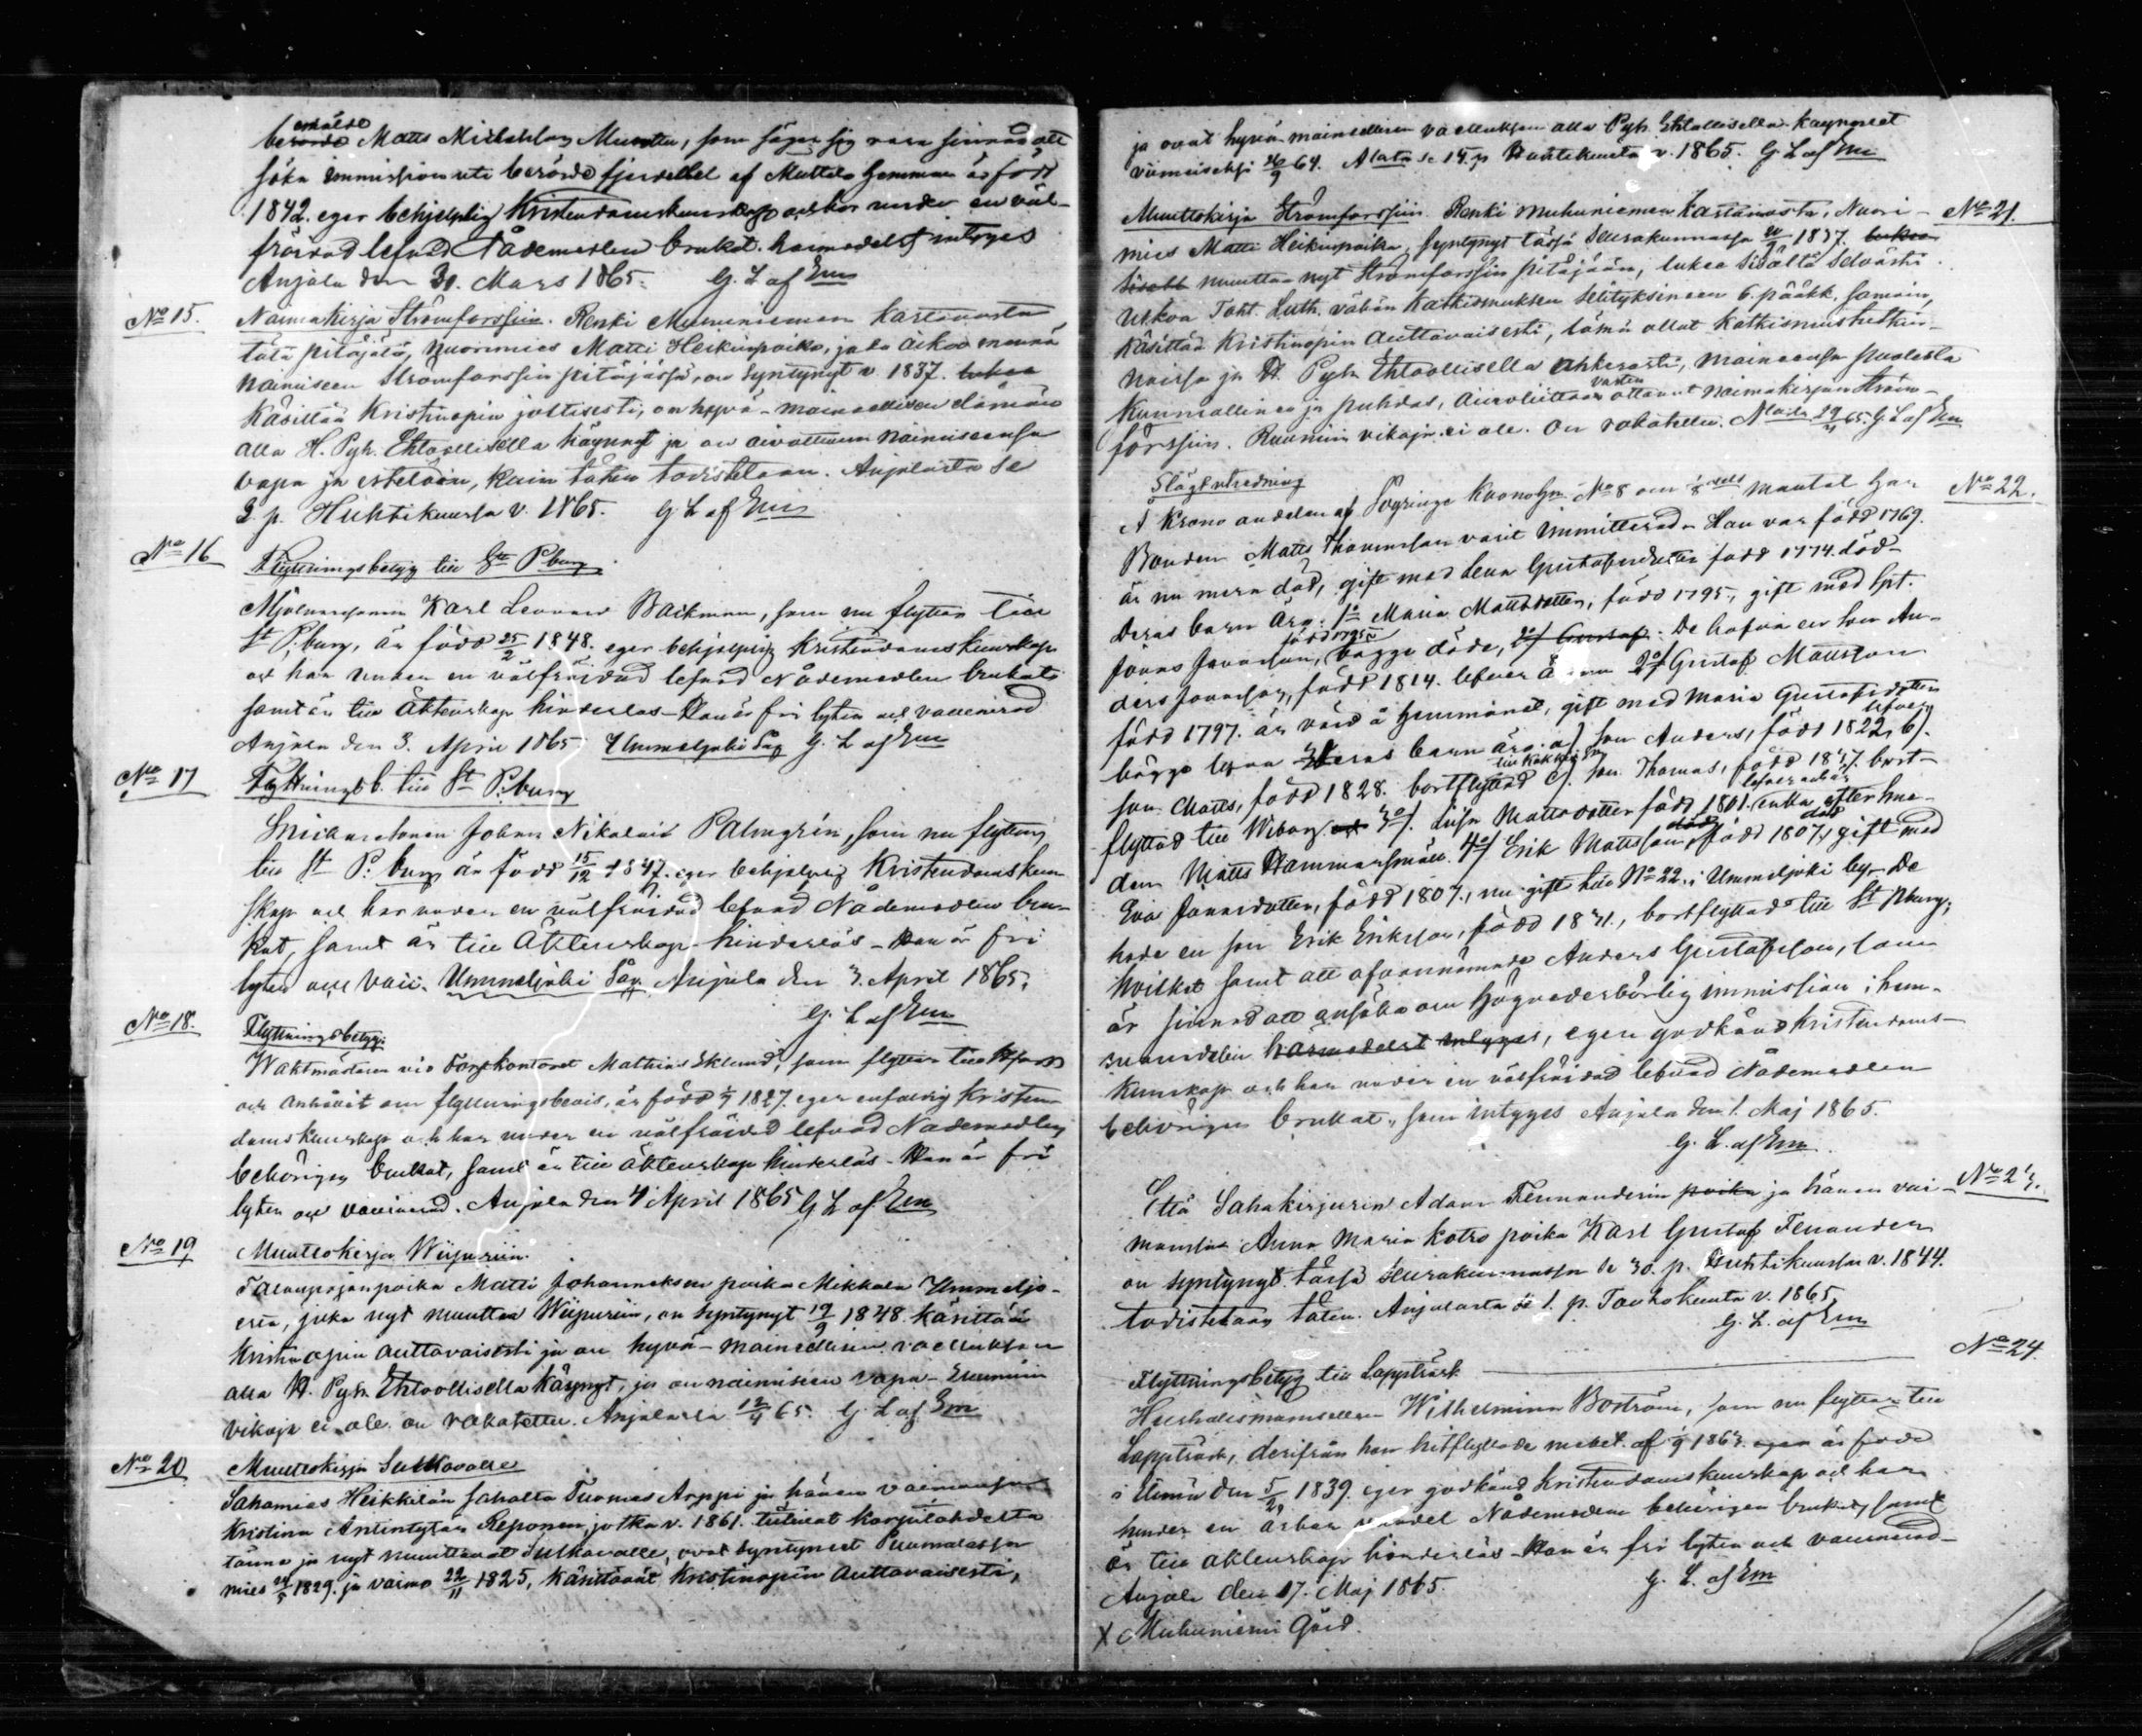 Matts Michelsson Muratta, som säger sig vara sinnad att
söka immission uti berörde fjerdedel af Muttala hemman är född
1842. eger behjelplig Kristendomskunskap och har under en väl-
fräjdad lefnad Nådemedlen brukat. hvarmedelst intyges
Anjala den 30. Mars 1865. G. L. af Em
No 15. Naimakirja Strömforssiin. Renki Muhuniemen Kartanosta
tätä pitäjätä, nuorimies Matti Heikinpoika, joka aikoo mennä
naimiseen Strömforssin pitäjässä, on syntynyt v. 1837. lukee
Käsittää Kristinopin jottisesti, on hyvä-maineellisen elämän
alla H. Pyh. Ehtoollisella käynyt ja on aivottuun naimiseensa
vapa ja esteetöin, kuin täten todistetaan. Anjalasta se
3. p. Huhtikuussa v. 1865. G. L. af Em
No 16 Flyttningsbetyg till St. P:burg
Mjölnaresonen Karl Leonard Backman, som nu flyttar till
St P:burg, är född 25/2 1848. eger behjelplig Kristendomskunskap
och har under en välfräjdad lefnad Nådemedlen brukat
samt är till Äktenskap hinderlös - Han är fri lyten och vaccinerad
Anjala den 3. April 1865 Ummeljoki Såg G. L. af Em
No 17 Flyttningsb. till St P:burg
Smidaresonen Johan Nikolai Palmgrén, som nu flyttar
till St P:burg är född 15/12 1847. eger behjelplig Kristendomskun-
skap och har under en välfräjdad lefnad Nådemedlen bru-
kat, samt är till Äktenskap hinderlös - Han är fri
lyten och vacc. Ummeljoki Såg Anjala den 3. April 1865.
G. L. af Em
No 18. Flyttningsbetyg
Waktmästaren vid Mathias Eklund, som flyttar till
och anhållit om flyttningsbevis, är född 1827. eger enfaldig Kristen-
domskunskap och har under en välfräjdad lefnad Nådemedlen
behörigen brukat, samt är till Äktenskap hinderlös - Han är fri
lyten och vaccinerad. Anjala den 4 April 1865 G. L. af Em
No 19 Muuttokirja Wiipuriin.
Talonpojanpoika Matti Johanneksen poika Mikkala Ummeljo-
esta, joka nyt muuttaa Wiipuriin, on syntynyt 19/9 1848. käsittää
Kristinopin auttavaisesti ja on hyvä-maineellisen vaelluksen
alla H. Pyh. Ehtoollisella käynyt, ja on naimiseen vapa - Ruumiin
vikoja ei ole. on rokotettu. Anjalassa 12/4 65. G. L. af Em
No 20 Muuttokirja Sulkavalle
Sahamies Heikkilän sahalta Tuomas Arppi ja hänen vaimonsa
Kristina Antintytär Reponen, jotka v. 1861. tulivat
tänne ja nyt muuttavat Sulkavalle, ovat syntyneet Puumalassa
mies 1829. ja vaimo 22/11 1825, käsittävät Kristinopin auttavaisesti,
ja ovat hyvä-maineellisen vaelluksen alla Pyh. Ehtoollisella käyneet
viimeiseksi 64. se 14. p. Huhtikuuta v. 1865. G. L. af Em
No 21. Muuttokirja Strömforssiin. Renki Muhuniemen Kartanosta, Nuori-
mies Matti Heikinpoika, syntynyt tässä Seurakunnassa 1837.
muuttaa nyt Strömforssin pitäjään, lukee Sisältä Selvästi
Ulkoa Toht. Luth. vähän Katkismuksen selityksineen 6. pääkk. samoin,
Käsittää Kristinopin auttavaisesti, tämä ollut Katkismustutkin-
noissa ja H. Pyh. Ehtoollisella ahkerasti, maineensa puolesta
Kunniallinen ja puhdas, Avioliittoa varten ottanut naimakirjan Ström-
forssiin. Ruumiin vikoja ei ole. On rokotettu. 65. G. L. af Em
No 22. Slägtutredning
Å Krono andelen af No 8 om 1/8 mantal har
Bonden Matts Thomasson varit immitterad. Han var född 1769.
är nu mera död, gift med Lena Gustafsdotter född 1774. död -
Deras barn äro: 1o Maria Mattsdotter, född 1795, gift med
Jonas Jonasson, född 1795 bägge döde, 2o Gustaf. De hafva en son An-
ders Jonasson, född 1814. lefver 2o Gustaf Mattsson
född 1797. är värd å hemmanet, gift med Maria Gustafsdotter
bägge lefva Deras barn äro: a) son Anders, född 1822, lefver b).
son Matts, född 1828. bortflyttad c). son Thomas, född 1837. bort-
flyttad till Wiborg 3o). Lisa Mattsdotter född 1801. enka efter
den Matts Hammarsmän. 4o) Erik Mattsson, född 1807, död gift med
Eva Jonasdotter, född 1807, nu gift till No 22. i Ummeljoki by. De
hade en son Erik Eriksson, född 1831, bortflyttad till St P:burg,
hvilket samt att ofvannämnde Anders Gustafsson, som
är sinnad att ansöka om högvederbörlig immission i hem-
mandelen härmedelst intyges, eger godkänd Kristendoms-
kunskap och har under en välfräjdad lefnad Nådemedlen
behörigen brukat, som intyges Anjala den 1. Maj 1865.
G. L. af Em
No 23. Että Sahakirjurin Adam Fernanderin poika ja hänen vai-
monsa Anna Maria Kotro poika Karl Gustaf Fernander
on syntynyt tässä Seurakunnassa se 30. p. Huhtikuussa v. 1844.
todistetaan täten. Anjalasta se 1. p. Toukokuuta v. 1865
G. L. af Em
No 24. Flyttningsbetyg till Lappträsk
Hushållsmamsellen Wilhelmina Boström, som nu flyttar till
Lappträsk, derifrån hon hitflyttade mebet. af 1863. egen är född
i Elimä den 1839. eger godkänd Kristendomskunskap och har
under en ärbar vandel Nådemedlen behörigen brukat, samt
är till äktenskap hinderlös - Hon är fri lyten och vaccinerad -
Anjala den 17. Maj 1865. G. L. af Em
X Muhuniemi Gård.